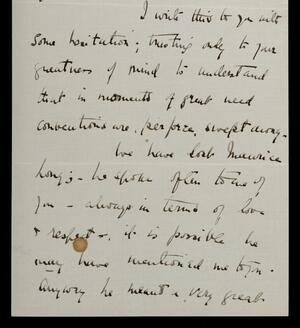 I write this to you with
some hesitation; trusting only to your
greatness of mind to understand
that in moments of great need
conventions are, perforce, swept away.
We have lost Maurice
Long; - he spoke often to me of
you - always in terms of love
& respect -. it is possible he
may have mentioned me to you -
Anyway he meant a very great